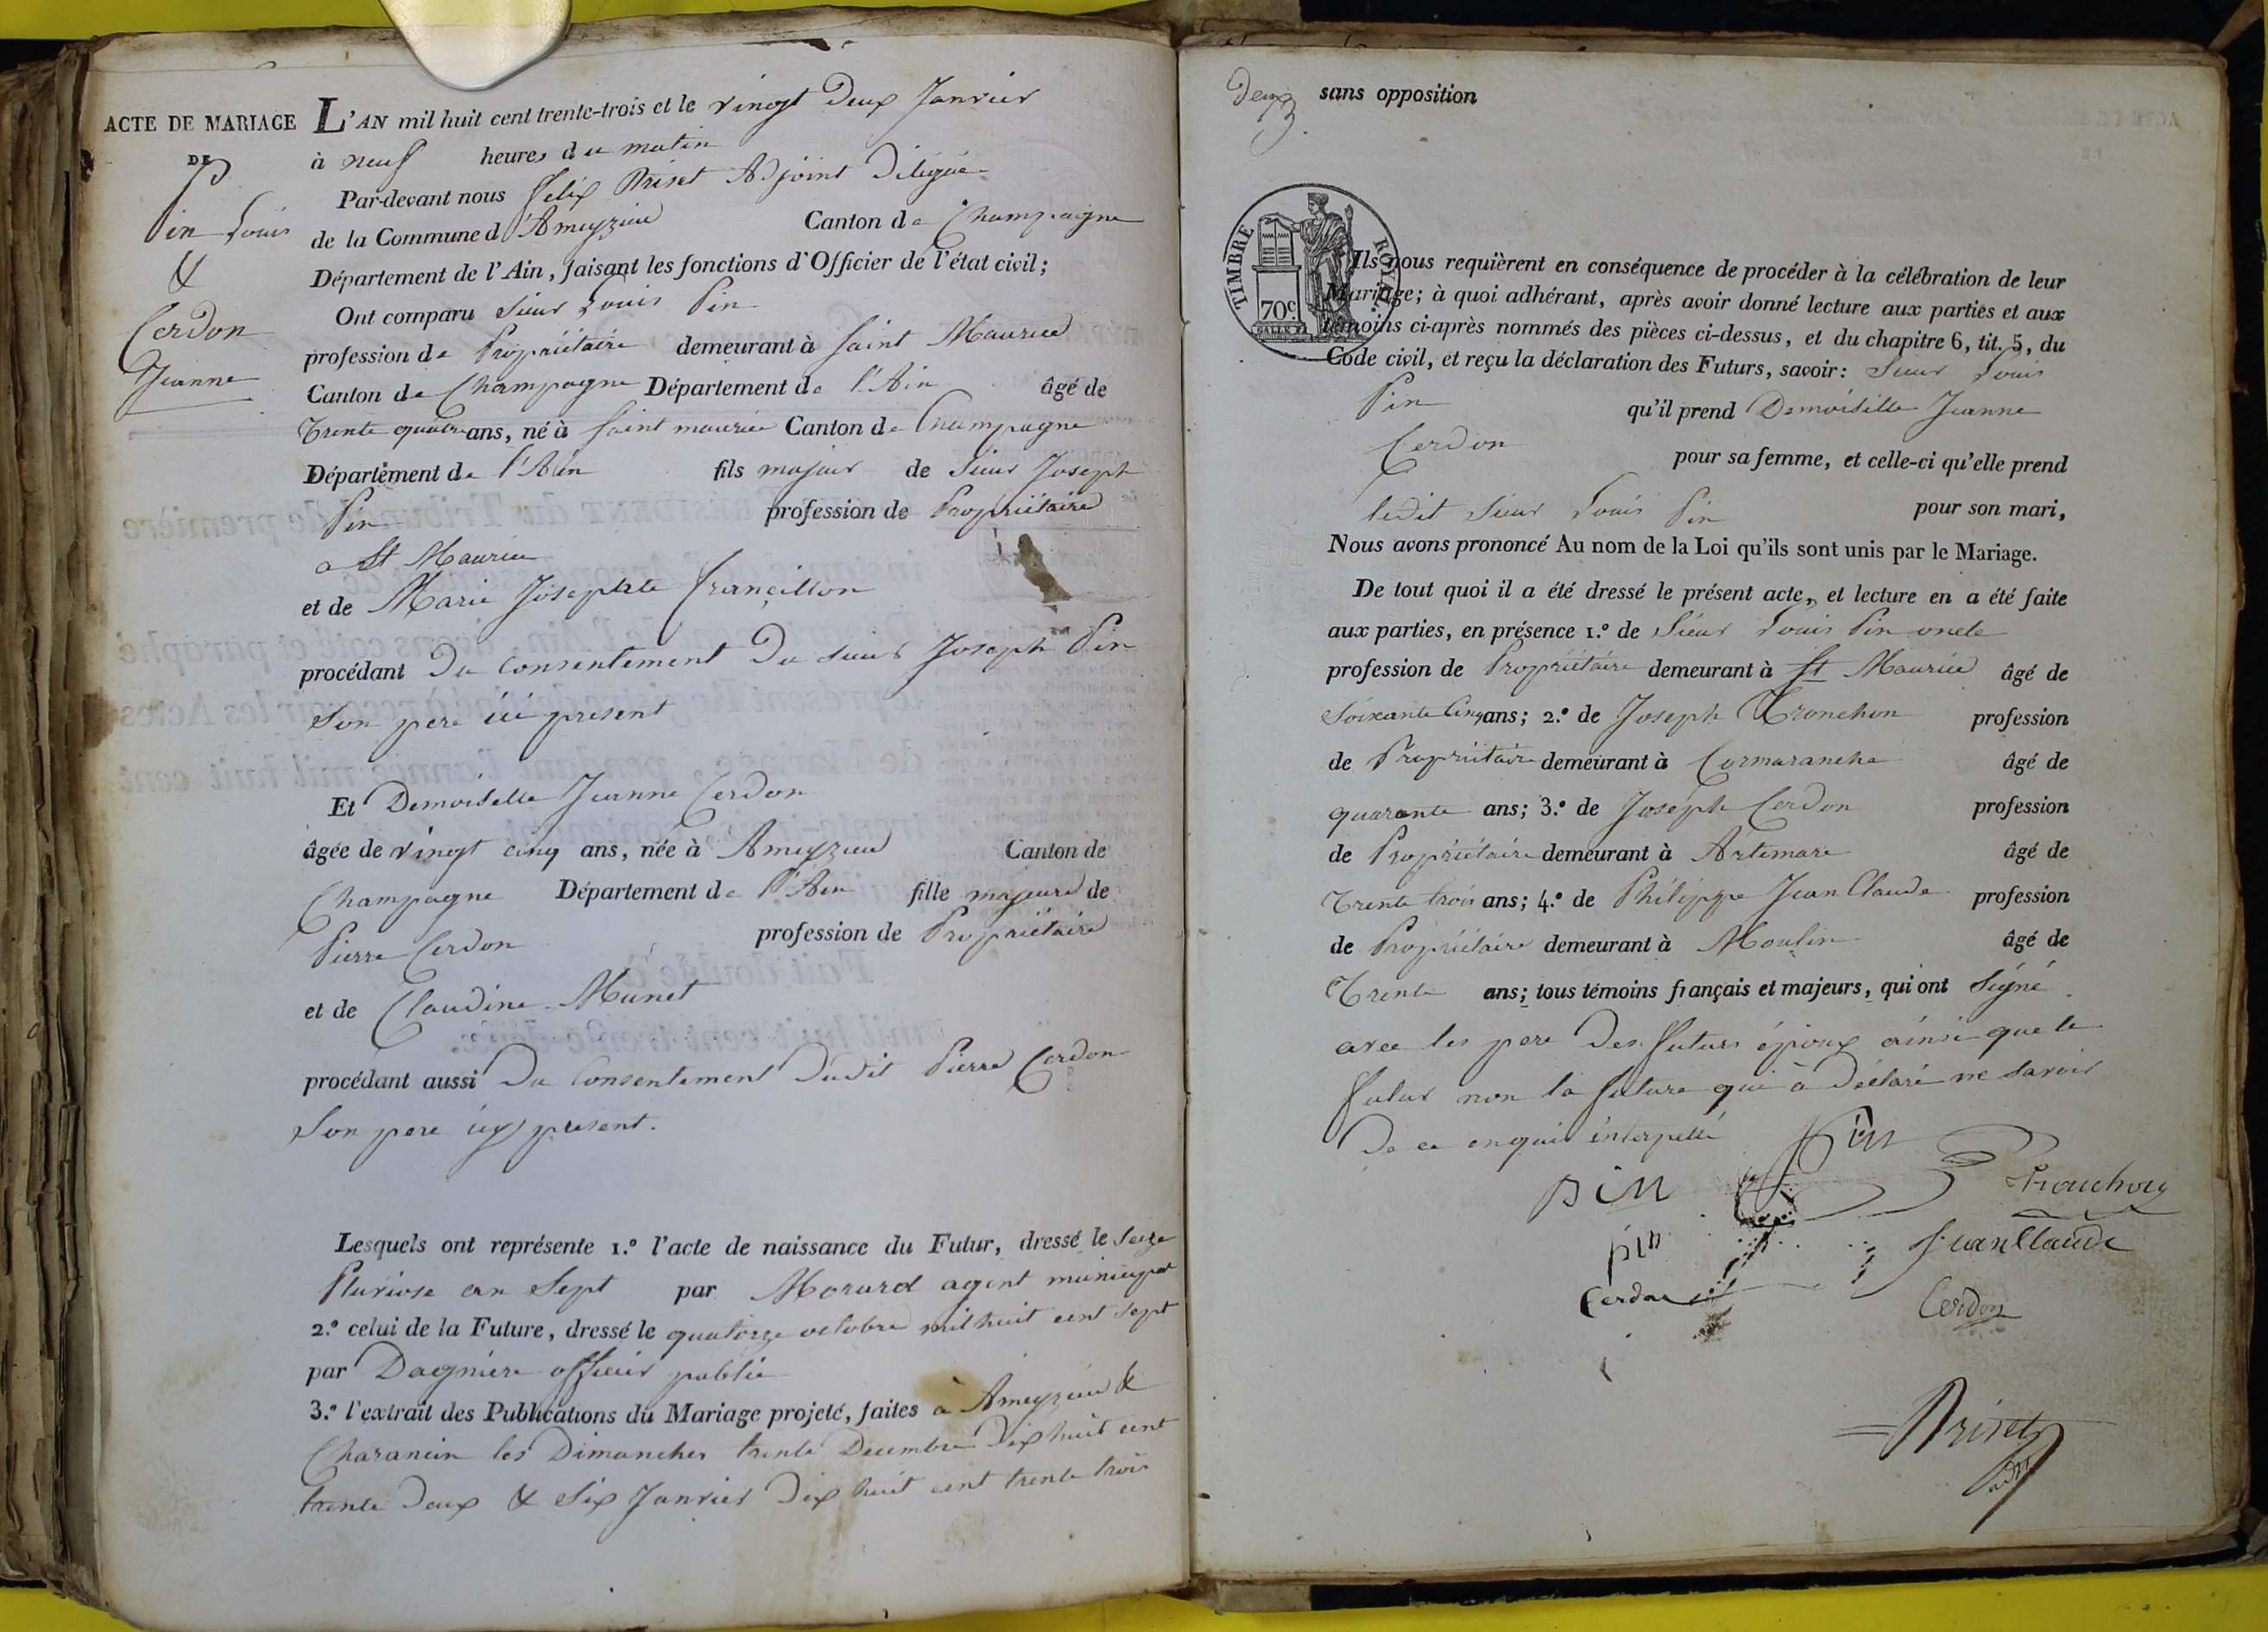 ACTE DE MARIAGE
DE
Pin Louis
&
Cerdon
Jeanne
L'AN mil huit cent trente-trois et le vingt Deux Janvier
à neuf heures du matin
Par-devant nous Felix Briset Adjoint Délégué
de la Commune d'Ameyzieu Canton de Champagne
Département de l'Ain, faisant les fonctions d'Officier de l'état civil;
Ont comparu Sieur Louis Pin
profession de Propriétaire demeurant à Saint Maurice
Canton de Champagne Département de l'Ain âgé de
Trente quatre ans, né à Saint maurice Canton de Champagne
Département de l'Ain fils majeur de Sieur Joseph
Pin profession de Propriétaire
a St Maurice
et de Marie Josephte Françillon
procédant Du Consentement Du sieur Joseph Pin
Son pere ici present
Et Demoiselle Jeanne Cerdon
âgée de vingt cinq ans, née à Ameyzieu Canton de
Champagne Département de l'Ain fille majeure de
Pierre Cerdon profession de Propriétaire
et de Claudine Munet
procédant aussi Du Consentement Dudit Pierre Cerdon
Son pere icy present.
Lesquels ont représente 1.º l'acte de naissance du Futur, dressé le Seize
Pluviose an Sept par Morard agent municipal
2.º celui de la Future, dressé le quatorze octobre mil huit cent sept
par Dagnière officier public
3.º l'extrait des Publications du Mariage projeté, faites à Ameyzieu &
Charancin les Dimanches trente Decembre Dix huit cent
trente Deux & Six Janvier Dix huit cent trente trois
Deux sans opposition
TIMBRE ROYAL
70c
Ils nous requièrent en conséquence de procéder à la célébration de leur
Mariage; à quoi adhérant, après avoir donné lecture aux parties et aux
témoins ci-après nommés des pièces ci-dessus, et du chapitre 6, tit. 5, du
Code civil, et reçu la déclaration des Futurs, savoir: Sieur Louis
Pin qu'il prend Demoiselle Jeanne
Cerdon pour sa femme, et celle-ci qu'elle prend
ledit Sieur Louis Pin pour son mari,
Nous avons prononcé Au nom de la Loi qu'ils sont unis par le Mariage.
De tout quoi il a été dressé le présent acte, et lecture en a été faite
aux parties, en présence 1.º de Sieur Louis Pin oncle
profession de Propriétaire demeurant à St Maurice âgé de
Soixante Cinq ans; 2.º de Joseph Tronchon profession
de Propriétaire demeurant à Cormaranche âgé de
quarante ans; 3.º de Joseph Cerdon profession
de Propriétaire demeurant à Artemare âgé de
Trente trois ans; 4.º de Philippe Jean Claude profession
de Propriétaire demeurant à Moulin âgé de
Trente ans; tous témoins français et majeurs, qui ont Signé
avec les pere Des futurs époux ainsi que le
futur non la future qui à Déclaré ne savoir
De ce enquis interpellé
Pin
Pin
Tronchon
pin
Jean Claude
Cerdon
Cerdon
Briset